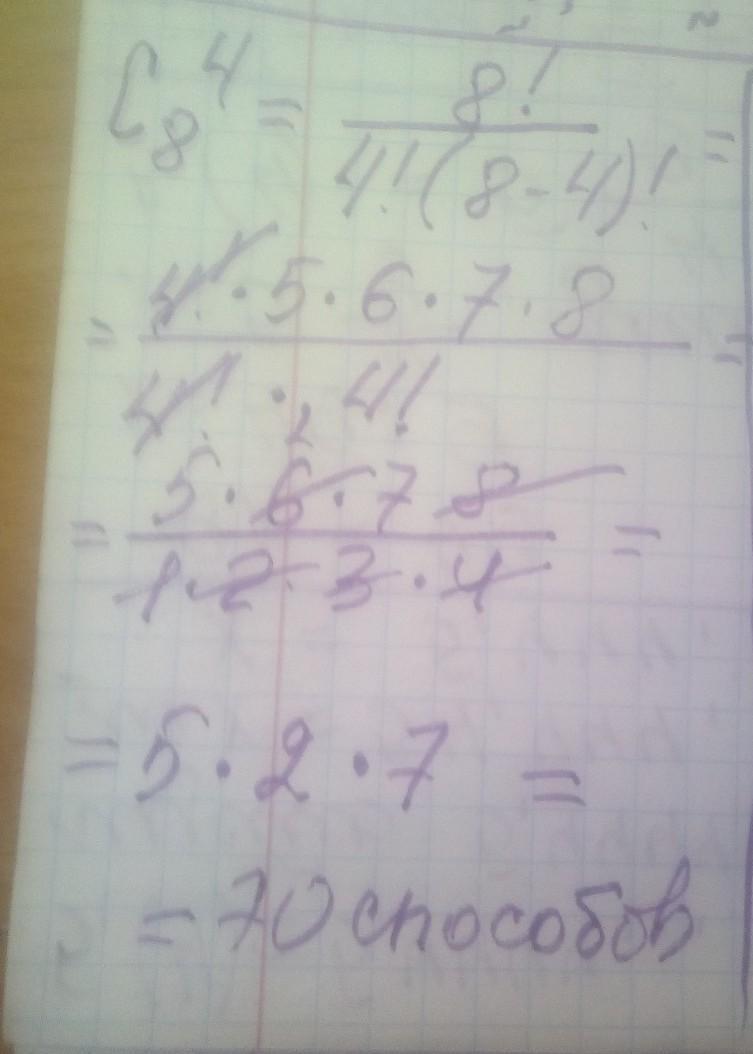 C₈⁴ = 8! / 4!(8-4)! =
= 4! · 5 · 6 · 7 · 8 / 4! · 4! =
= 5 · 6 · 7 8 / 1 · 2 · 3 · 4 =
= 5 · 2 · 7 =
= 70 способов